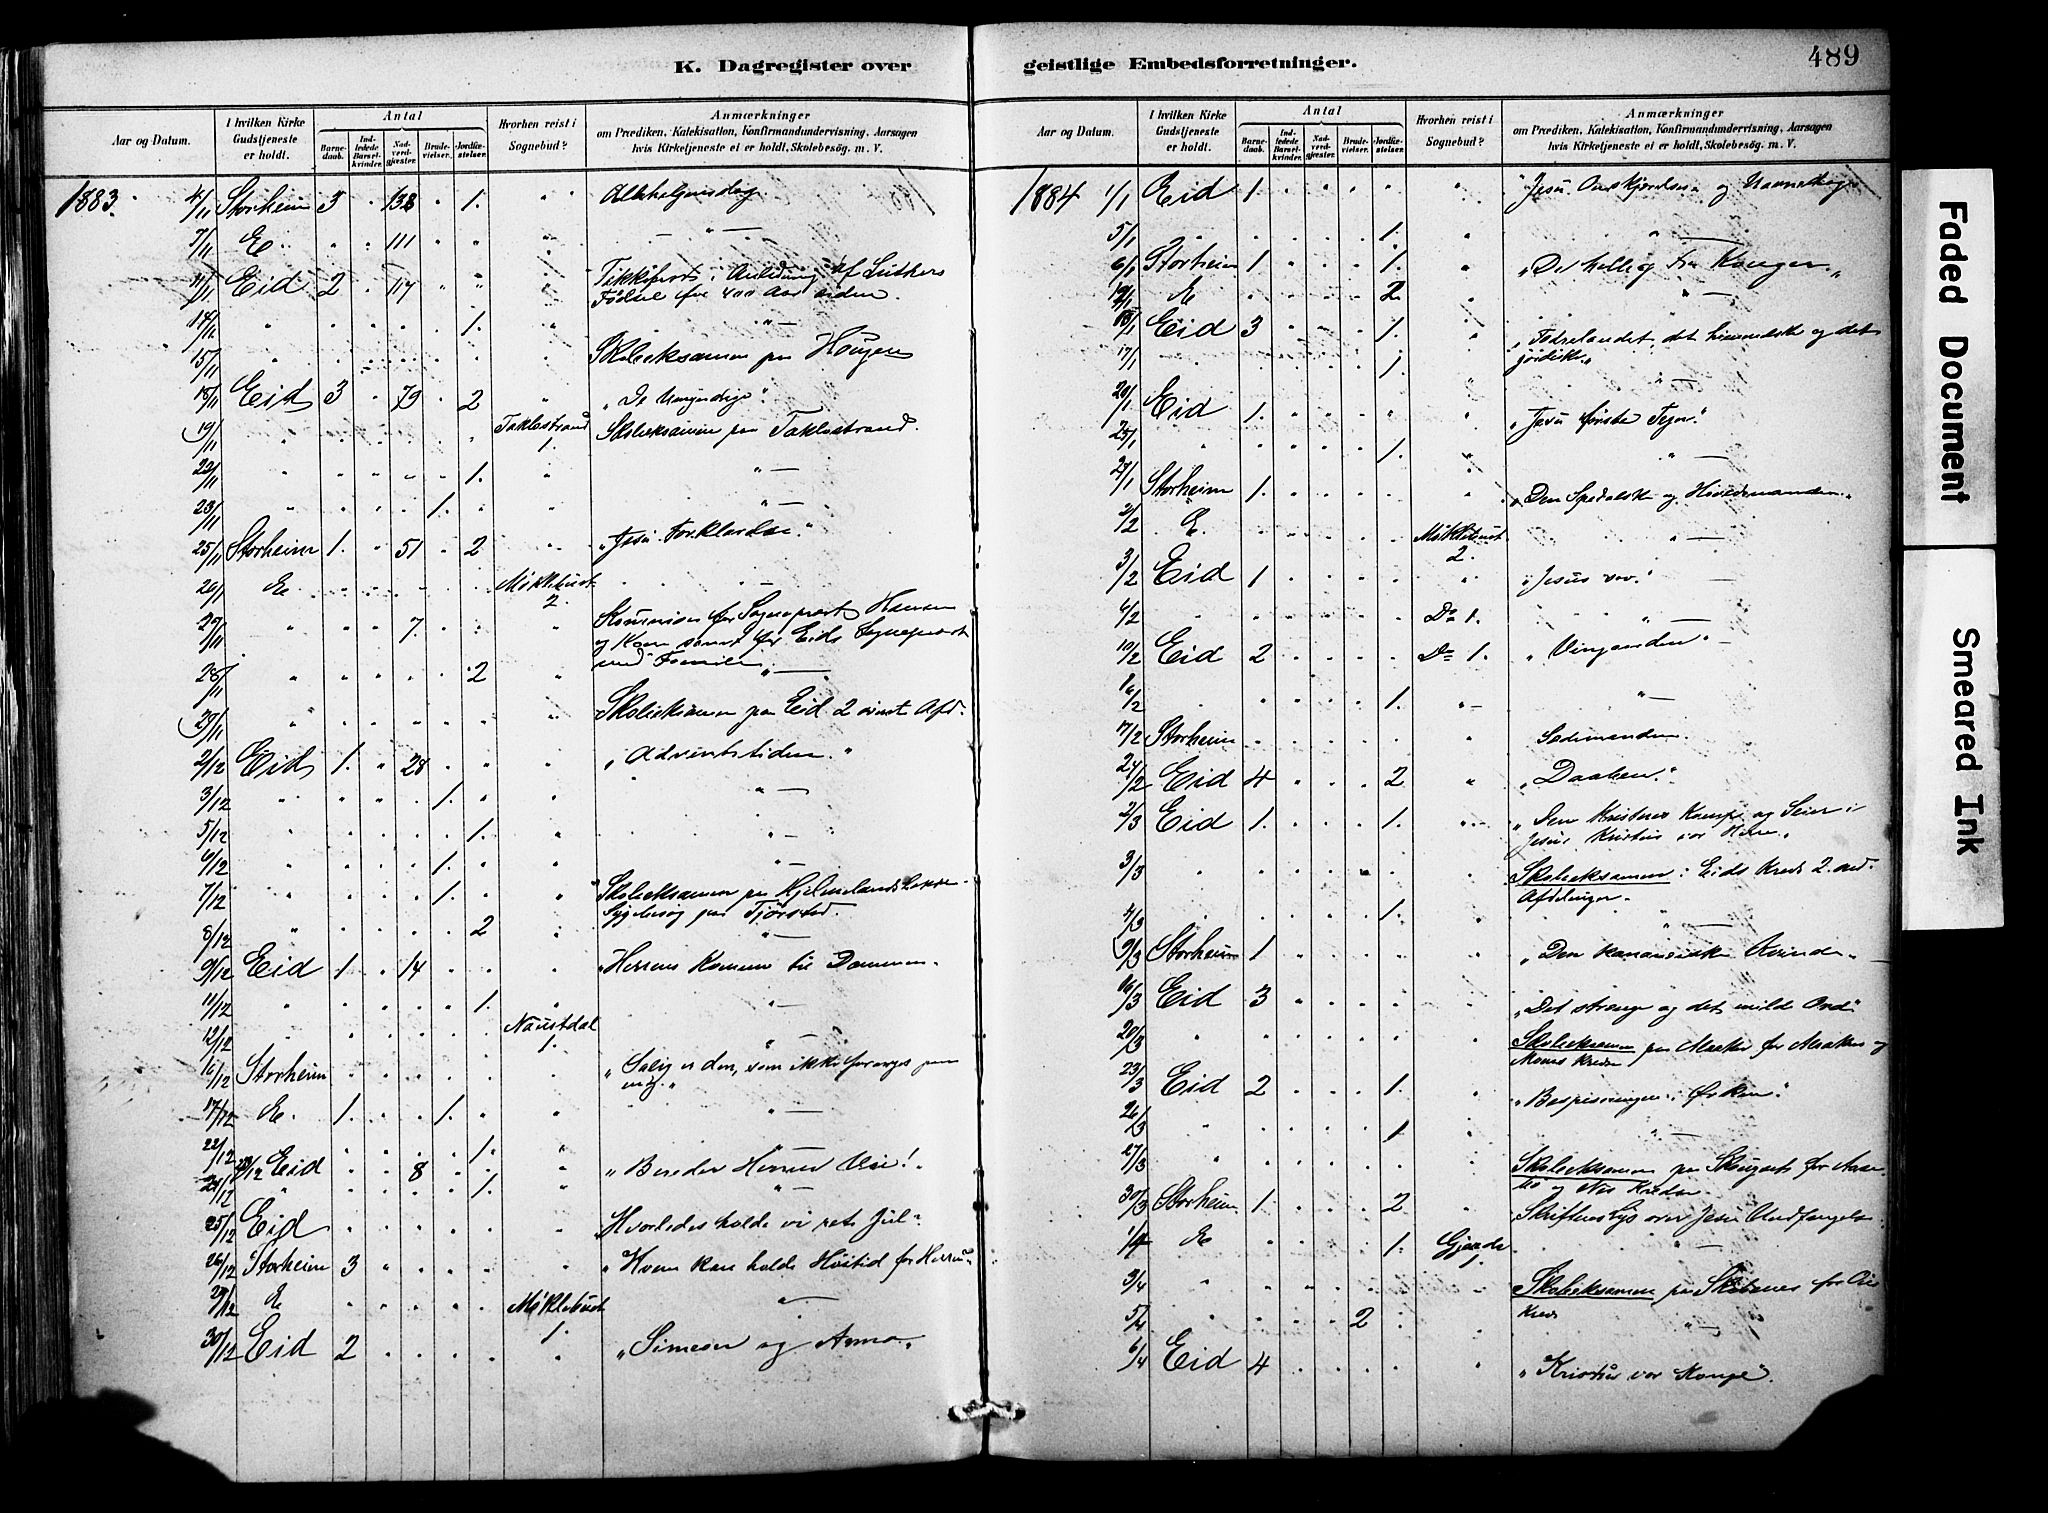 K. Dagregister over
Aar og Datum.
I hvilken Kirke Gudstjeneste er holdt.
Antal
Barnedaab.
Indledede Barselkvinder.
Nadverdgjester.
Brudevielser.
Jordfæstelser.
Hvorhen reist i Sognebud?
Anmærkninger
om Prædiken, Katekisation, Konfirmandundervisning, Aarsagen
hvis Kirketjeneste ei er holdt, Skolebesög. m. V.
1883. 4/11 Storheim 3 " 138 " 1. " Allehelgensdag
7/11 E. " " 111 " " " — " —
11/11 Eid 2 " 117 " " " Takkefest i Anledning af Luthers
Fødsel for 400 Aar siden.
14/11 " " " " " 1. " — " —
15/11 " Skoleeksamen paa Haugen
18/11 Eid 3 " 79 " 2 " "De Unyendige"
19/11 " Taklestrand 1. Skoleeksamen paa Taklestrand
22/11 " " " " " 1. " — " —
23/11 " " " " 1. " " — " —
25/11 Storheim 1. " 51 " 2 " "Jesu Forklarelse."
26/11 E. Mykklebust 2.
" " " 7. " " " for Sogneprest Hansen
og Kone samt for Eids Sogneprest
med Familie
28/11 " " " " " 2 " — " —
29/11 " Skoleeksamen paa Eid 2 Afd.
2/12 Eid 1. " 28 " " " "Adventstiden."
3/12 " " " " 1. " " — " —
5/12 " " " " " 1. " — " —
6/12 " " " " 1. " " — " —
7/12 " " " " 1. " " Skoleeksamen paa Hjelmelandsbakke
Sygebesøg paa Tjørstad.
8/12 " " " " " 2 " — " —
9/12 Eid 1. " 14 " " " "Herrens Komme til Dommen"
11/12 " " " " " 1. " — " —
12/12 " Naustdal 1. — " —
16/12 Storheim "Salig er den, som ikke forarges paa
mig."
17/12 E. 1. " " 1. " " — " —
22/12 " " " " " 1. "
23/12 Eid " " 8 " " " "Bereder Herrens Vei!"
24/12 " " " " " 1. " — " —
25/12 Eid " Hvorledes holde vi ret Jul"
26/12 Storheim 3 " " " " " "Hvem kan holde Høitid for Herren"
29/12 E. Myklebust 1. — " —
30/12 Eid 2 " " " " " "Simeon og Anna."
geistlige Embedsforretninger.
489
Aar og Datum.
I hvilken Kirke Gudstjeneste er holdt.
Antal
Barnedaab.
Indledede Barselkvinder.
Nadverdgjester.
Brudevielser.
Jordfæstelser.
Hvorhen reist i Sognebud?
Anmærkninger
om Prædiken, Katekisation, Konfirmandundervisning, Aarsagen
hvis Kirketjeneste ei er holdt, Skolebesög. m. V.
1884 1/1 Eid 1. " " " " " "Jesu Omskjærelse og Navn
5/1 " " " " " 1. " — " —
6/1 Storheim 1 " " " 1. " "De hellig Tre Konger."
E " " " " 2. " — " —
13/1 Eid 3 " " " 1. " "Fædrelandet, det himmelske og det
jordiske"
17/1 " " " " " 1. " — " —
20/1 Eid 1. " " " " " "Jesu første Tegn."
25/1 " " " " " 1. " — " —
27/1 Storheim 1. " " " " " "Den Spedalske og Høvedsmanden."
2/2 E. Myklebust 2. — " —
3/2 Eid 1 " " " " " "Jesus sov."
6/2 " Do 1. — " —
10/2 Eid 2 " " " " Do 1. "Vingaarden"
16/2 " " " " " 1. " — " —
17/2 Storheim Sædemanden.
24/2 Eid 4 " " " 2 " "Daaben."
2/3 Eid 1. " " " 1. " "Den Kristnes Kamp og Seier i
Jesus Kristus vor Herre."
3/3 " Skoleeksamen i Eids Kreds 2. ord.
Afdelinger.
4/3 " " " " " 1. " — " —
9/3 Storheim 1 " " " " " "Den kananæiske Kvinde"
16/3 Eid 3 " " " " " "Det strenge og det milde Ord"
20/3 " Skoleeksamen paa Maake for Maakes og
Kredse
23/3 Eid 2 " " " 1. " "Bespisningen i Ørken."
26/3 " " " " " 1 " — " —
27/3 " Skoleeksamen paa for
og Kredse
30/3 Storheim 1. " " " 2 " over Jesu Undfangelse
1/4 E " " " " 1. 1. — " —
3/4 " Skoleeksamen paa for
Kreds
5/4 " " " " 2 " " — " —
6/4 Eid 4 " " " " " "Kristus vor Konge"
Faded Document
Smeared Ink